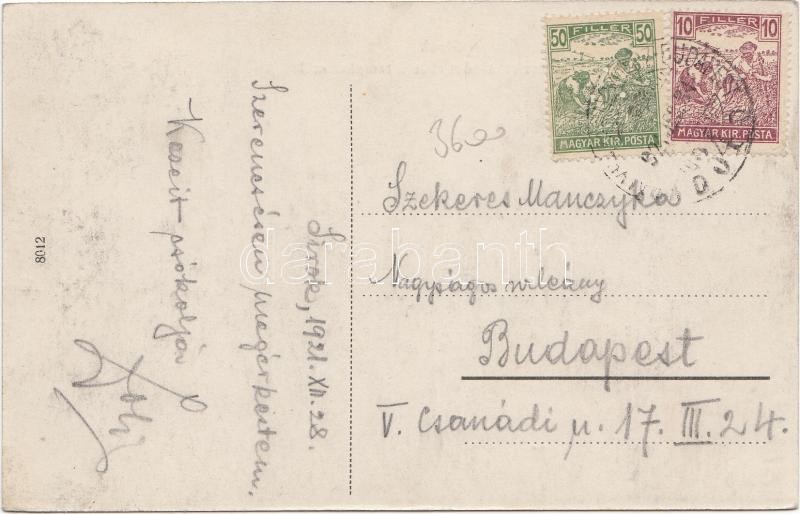 50 FILLÉR 50
MAGYAR KIR. POSTA
10 FILLÉR 10
MAGYAR KIR. POSTA
3600
Sirok, 1921. XII. 28.
Szerencsésen megérkeztem.
Kezeit csókolja
8012
Szekeres Manczyka
Nagyságos
Budapest
V. Csanádi u. 17. III. 24.
darabanth